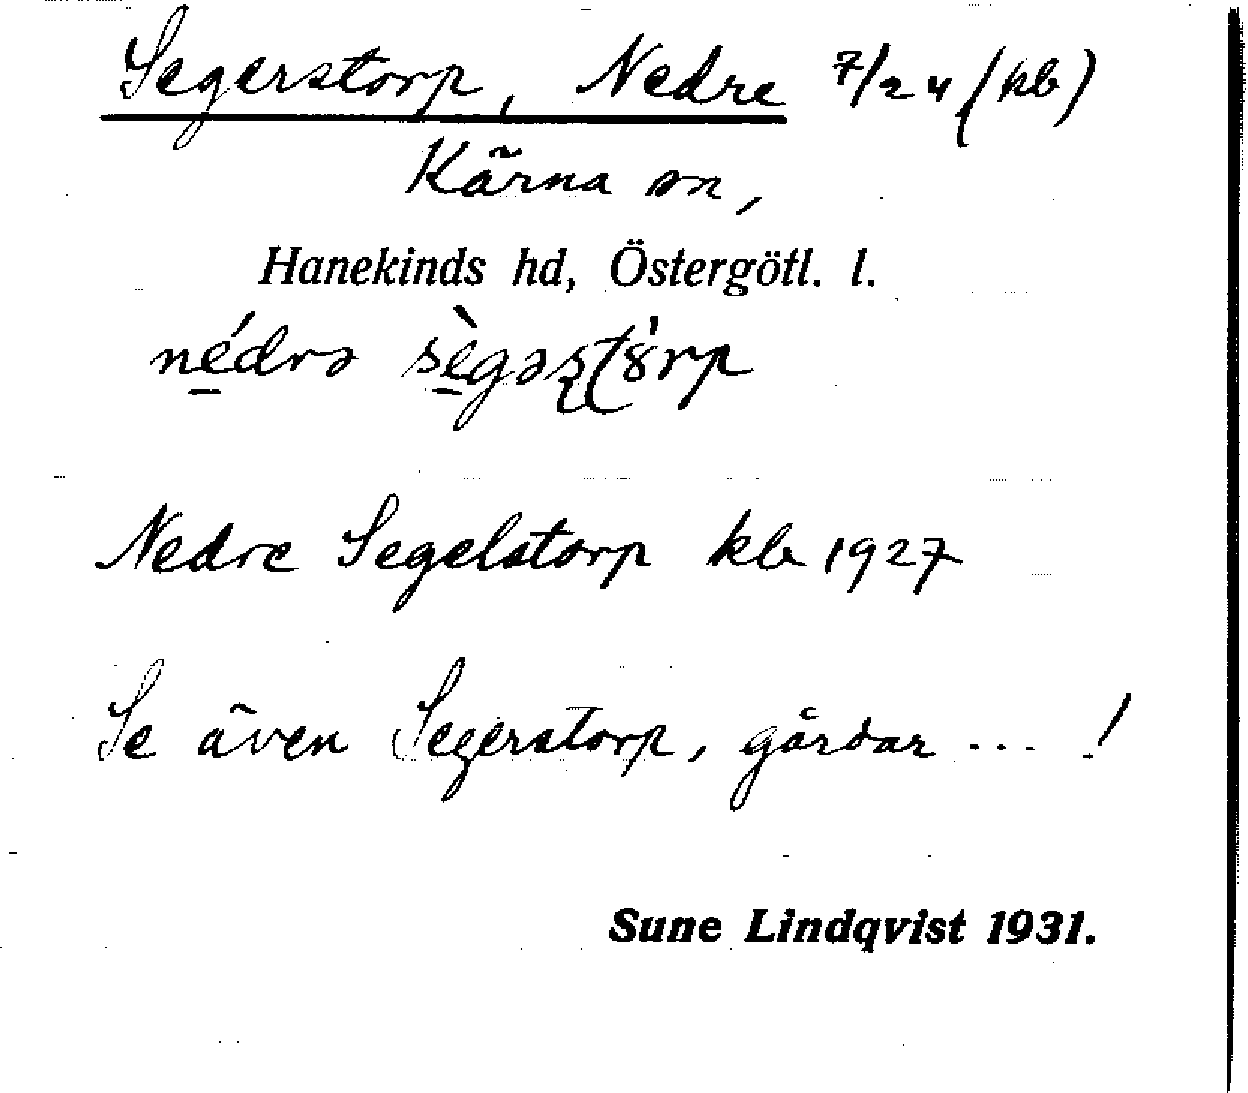 Segerstorp, Nedre 7/24 (kb)
Kärna sn,
Hanekinds hd, Östergötl. l.
nédrə sègəʂʈ8rp
Nedre Segelstorp kb 1927
Se även Segerstorp, gårdar ... !
Sune Lindqvist 1931.